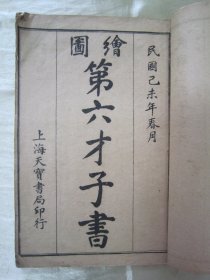 民國己未年春月
繪圖
第六才子書
上海天寶書局印行